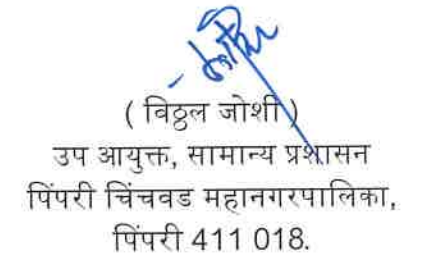 ( विठ्ठल जोशी )
उप आयुक्त, सामान्य प्रशासन
पिंपरी चिंचवड महानगरपालिका,
पिंपरी 411 018.